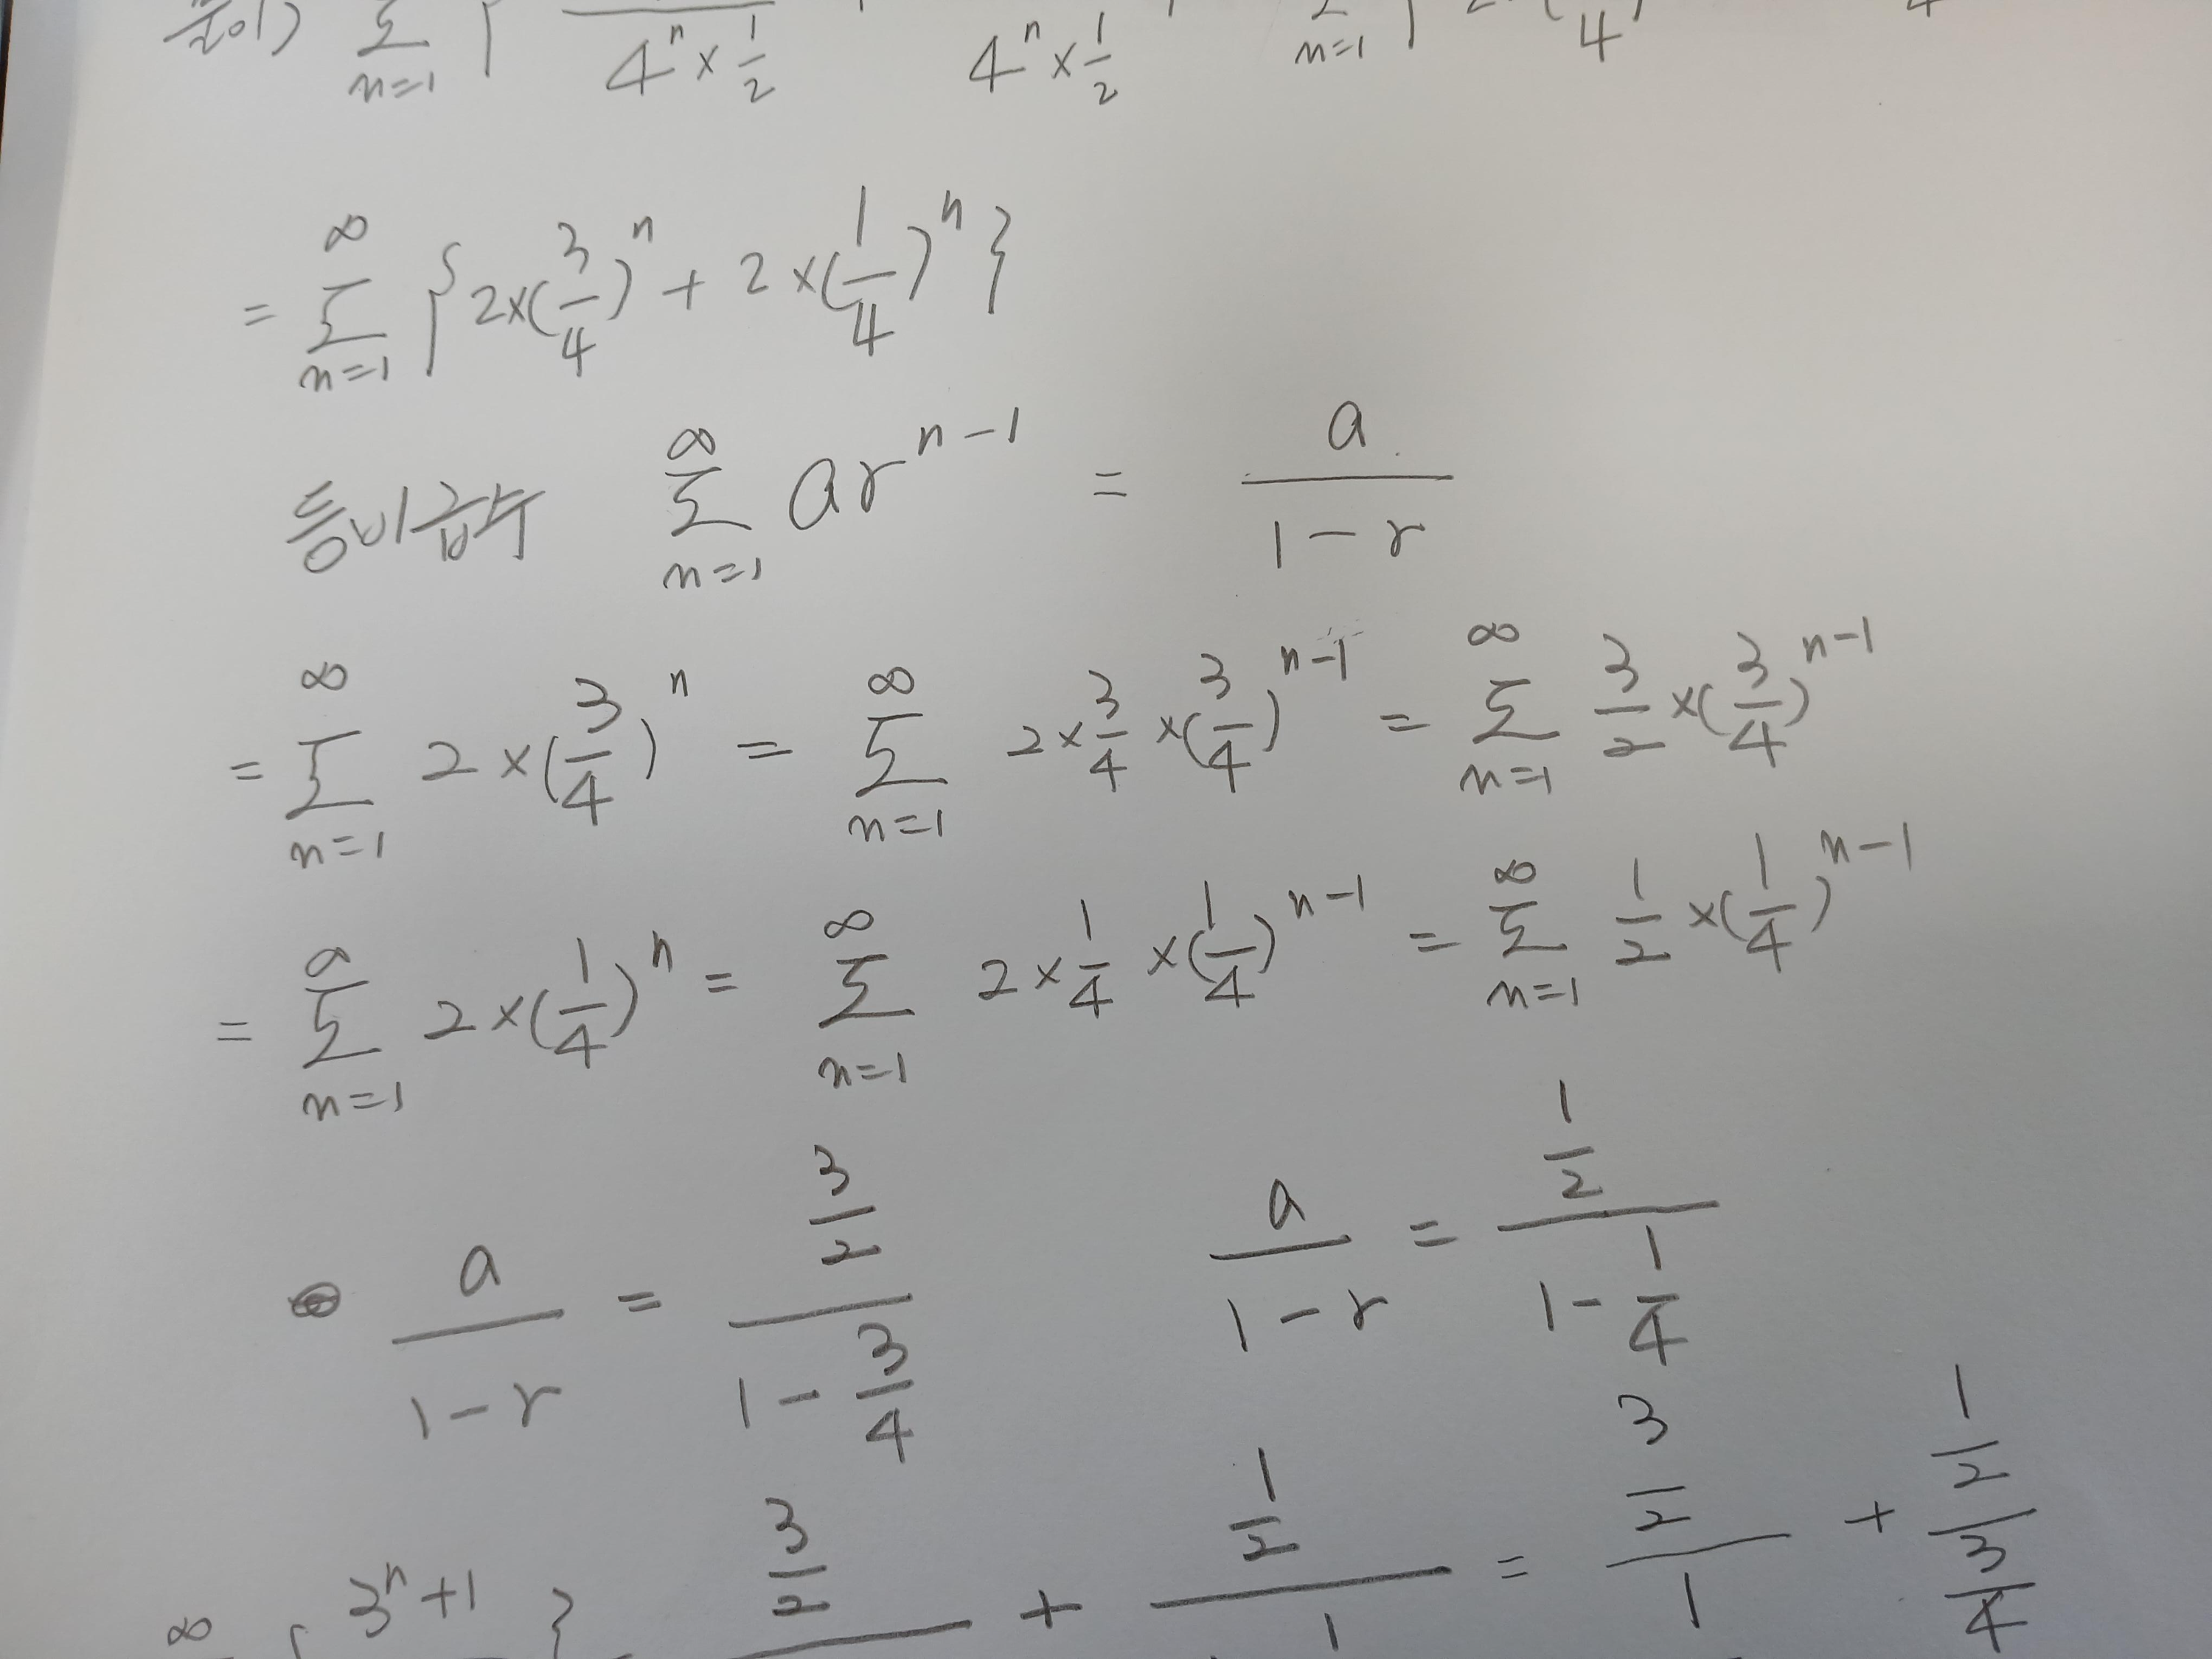 풀이) Σ n=1 { 4ⁿ × 1/2 4ⁿ × 1/2 Σ n=1 { 2 ( 4 ) 4
= ∞ Σ n=1 { 2×(3/4)ⁿ + 2×(1/4)ⁿ }
등비급수 ∞ Σ n=1 arⁿ⁻¹ = a/(1-r)
= ∞ Σ n=1 2×(3/4)ⁿ = ∞ Σ n=1 2×3/4×(3/4)ⁿ⁻¹ = ∞ Σ n=1 3/2×(3/4)ⁿ⁻¹
= ∞ Σ n=1 2×(1/4)ⁿ = ∞ Σ n=1 2×1/4×(1/4)ⁿ⁻¹ = ∞ Σ n=1 1/2×(1/4)ⁿ⁻¹
a/(1-r) = (3/2)/(1-3/4) a/(1-r) = (1/2)/(1-1/4)
∞ { 3ⁿ+1 } 3/2 + (1/2)/1 = (3/2)/1 + (1/2)/(3/4)